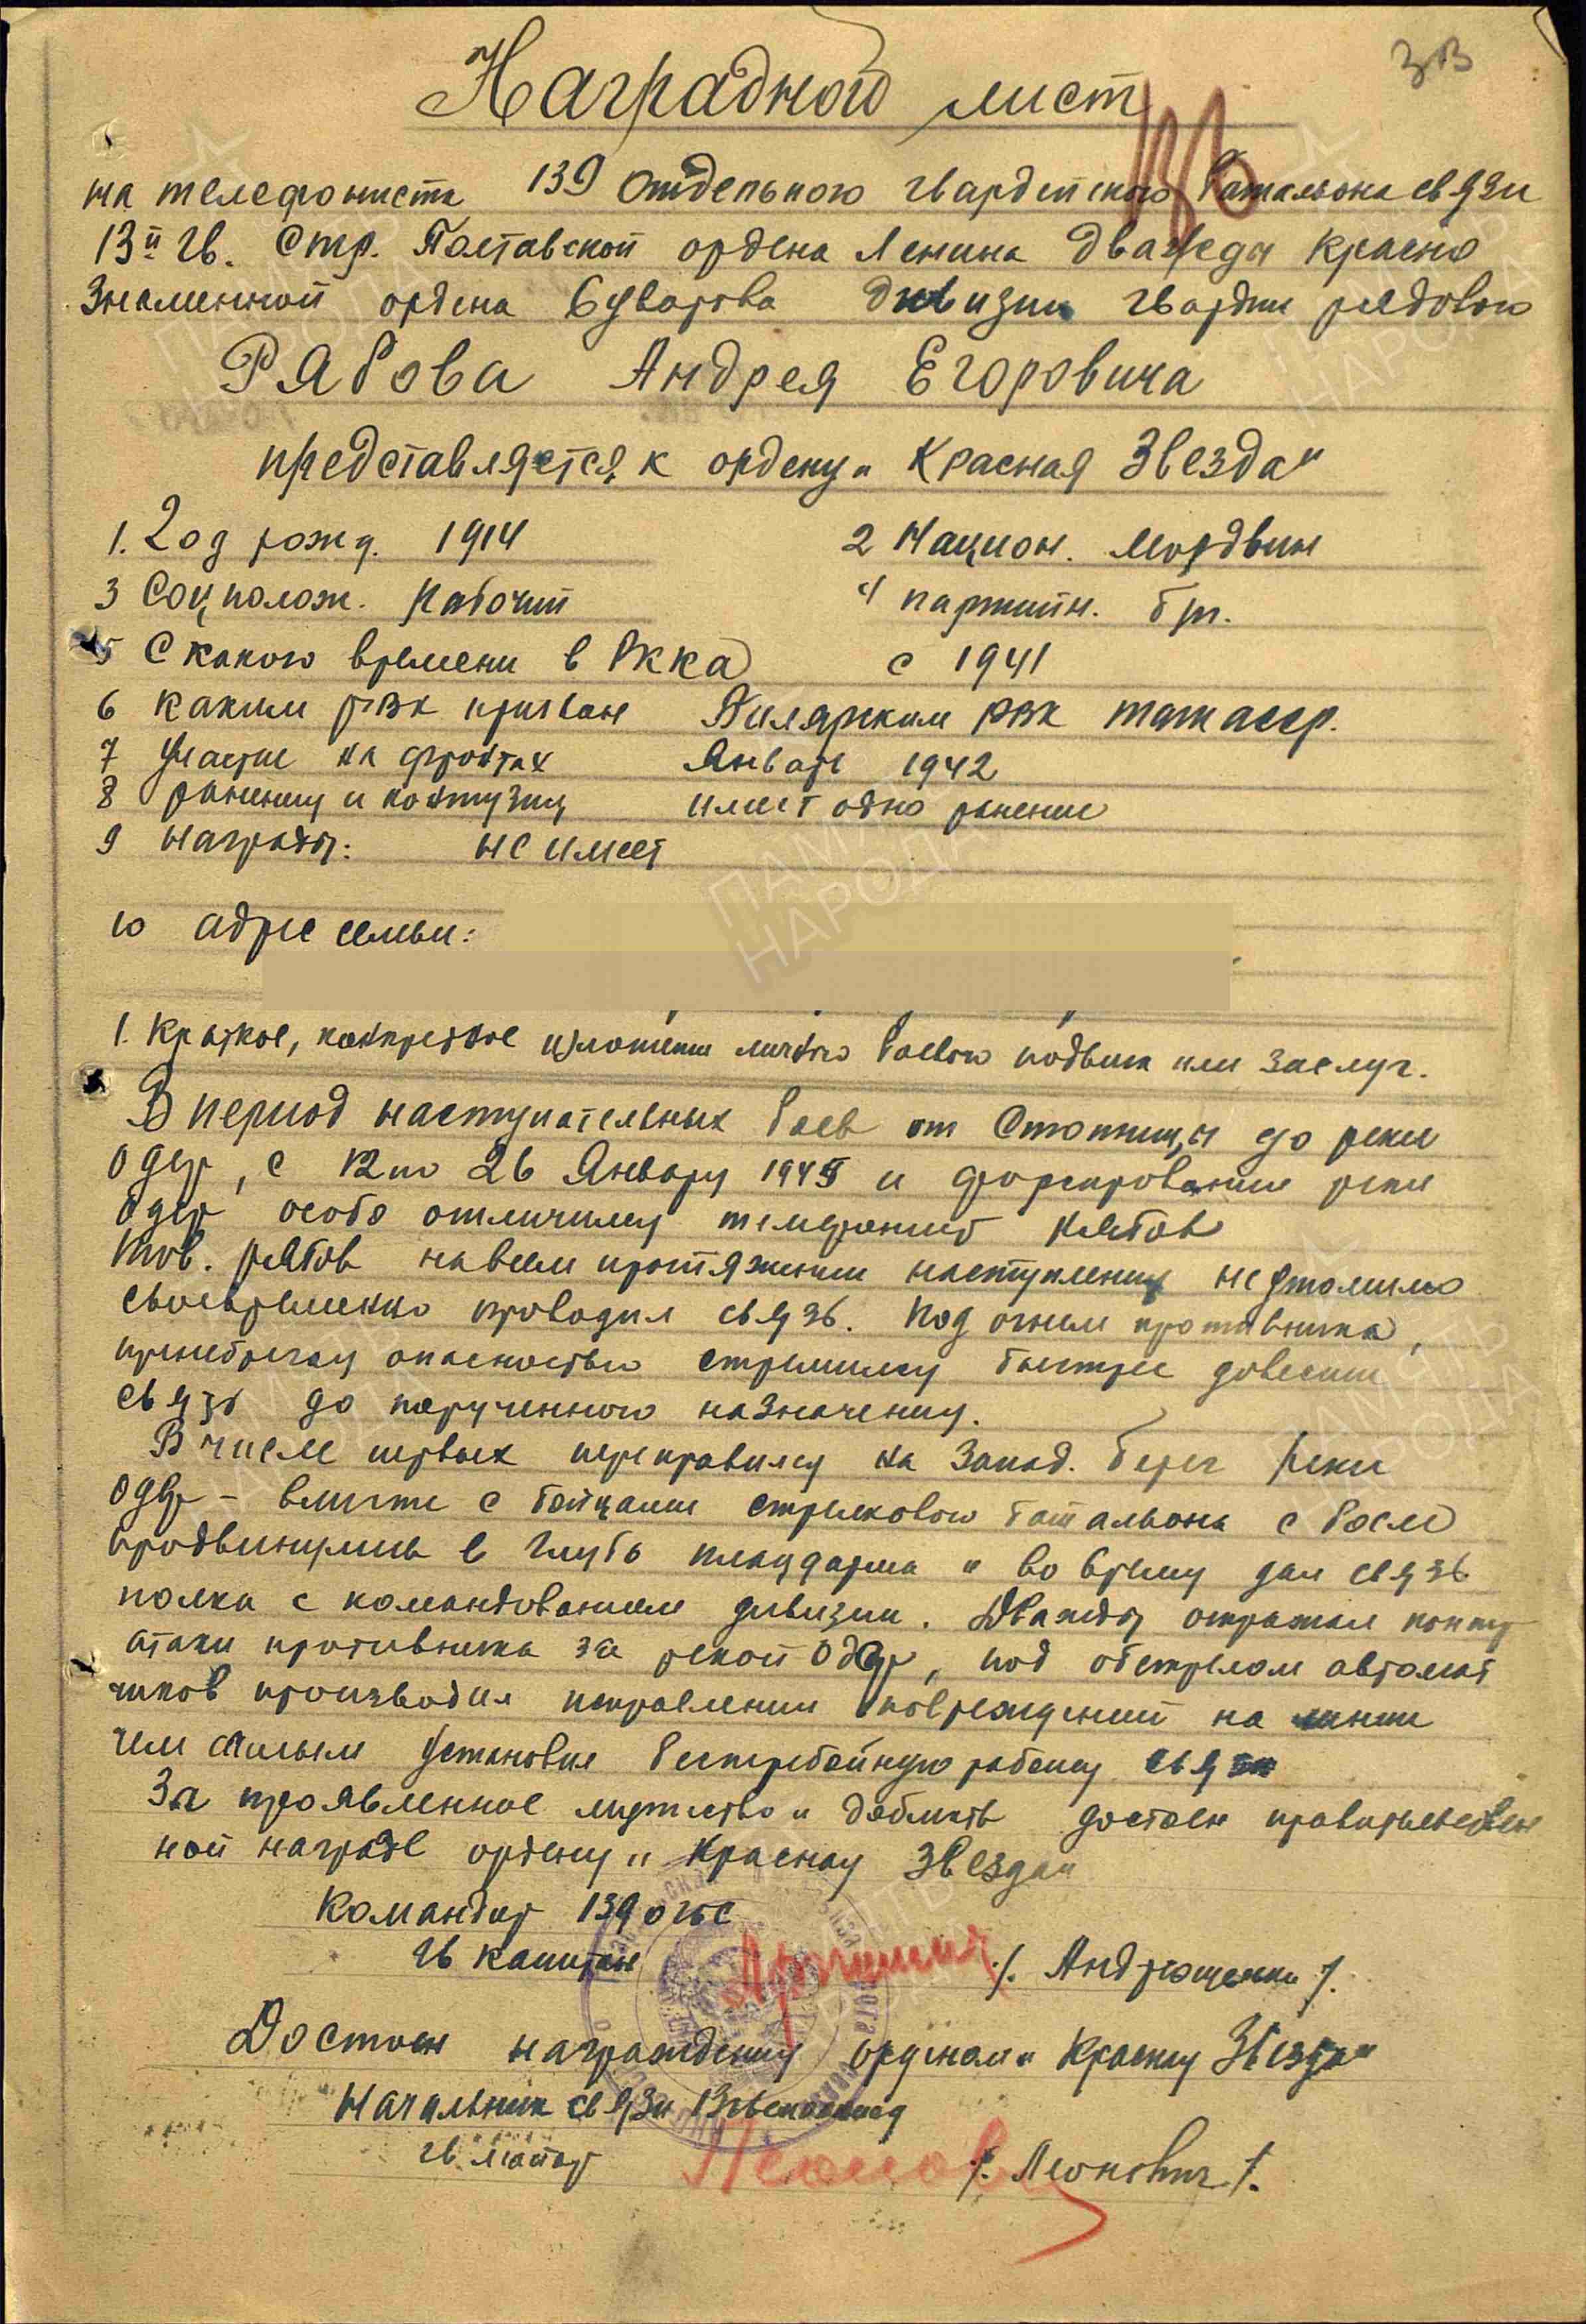 Наградной лист
зв
на телефониста 139 отдельного гвардейского баталиона связи
13й гв. Стр. Полтавской ордена Ленина дважды Красно
Знаменной ордена Суворова дивизии гвардии рядового
Рябова Андрея Егоровича
представляется к ордену „Красная Звезда"
1. Год рожд. 1914 2 Национ. мордвин
3 Соц полож. рабочий 4 партийн. бп.
5 С какого времени в РККА с 1941
6 каким РВК призван Билярским РВК татасср.
7 Участие на фронтах Январь 1942
8 ранения и контузия имеет одно ранение
9 награды: не имеет
10 адрес семьи:
1. Краткое, конкретное изложение личного боевого подвига или заслуг.
В период наступательных боев от Стопницы до реки
Одер, с 12 по 26 Январь 1945 и форсировании реки
Одер особо отличился телефонист Рябов
тов. Рябов на всем протяжении наступления неутомимо
своевременно проводил связь. Под огнем противника,
пренебрегая опасностью стремился быстрее довести
связь до порученного назначения.
В числе первых переправился на Запад. берег реки
Одер – вместе с бойцами стрелкового батальона с боем
продвинулись в глубь плацдарма и во время дал связь
полка с командованием дивизии. Дважды отражал контр
атаки противника за рекой Одер, под обстрелом автомат
чиков производил исправлении повреждений на линии
чем самым установил бесперебойную работу связи
За проявленное мужество и доблесть достоин правительствен
ной награде ордену „Красная Звезда"
Командир 139 огбс
гв капитан /. Андрющенко /.
Достоин награждения орденом „Красная Звезда"
Начальник связи 13гвсполксд
гв майор /. Леонович /.
ПАМЯТЬ
НАРОДА